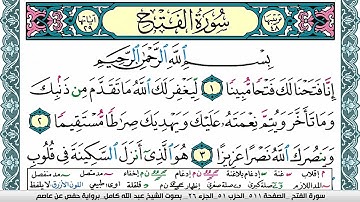 سُورَةُ الفَتْحِ
بِسْمِ ٱللَّهِ ٱلرَّحْمَٰنِ ٱلرَّحِيمِ
إِنَّا فَتَحْنَا لَكَ فَتْحًا مُّبِينًا ١ لِّيَغْفِرَ لَكَ ٱللَّهُ مَا تَقَدَّمَ مِن ذَنۢبِكَ
وَمَا تَأَخَّرَ وَيُتِمَّ نِعْمَتَهُۥ عَلَيْكَ وَيَهْدِيَكَ صِرَٰطًا مُّسْتَقِيمًا
٢ وَيَنصُرَكَ ٱللَّهُ نَصْرًا عَزِيزًا ٣ هُوَ ٱلَّذِىٓ أَنزَلَ ٱلسَّكِينَةَ فِى قُلُوبِ
سورة الفتح الصفحة ٥١١ الحزب ٥١ الجزء ٢٦ بصوت الشيخ عبد الله كامل برواية حفص عن عاصم